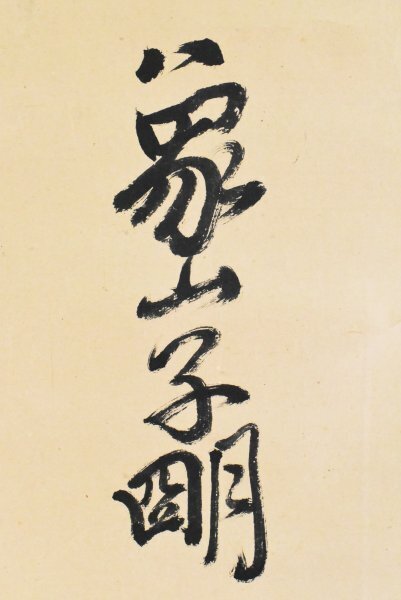 象山子明